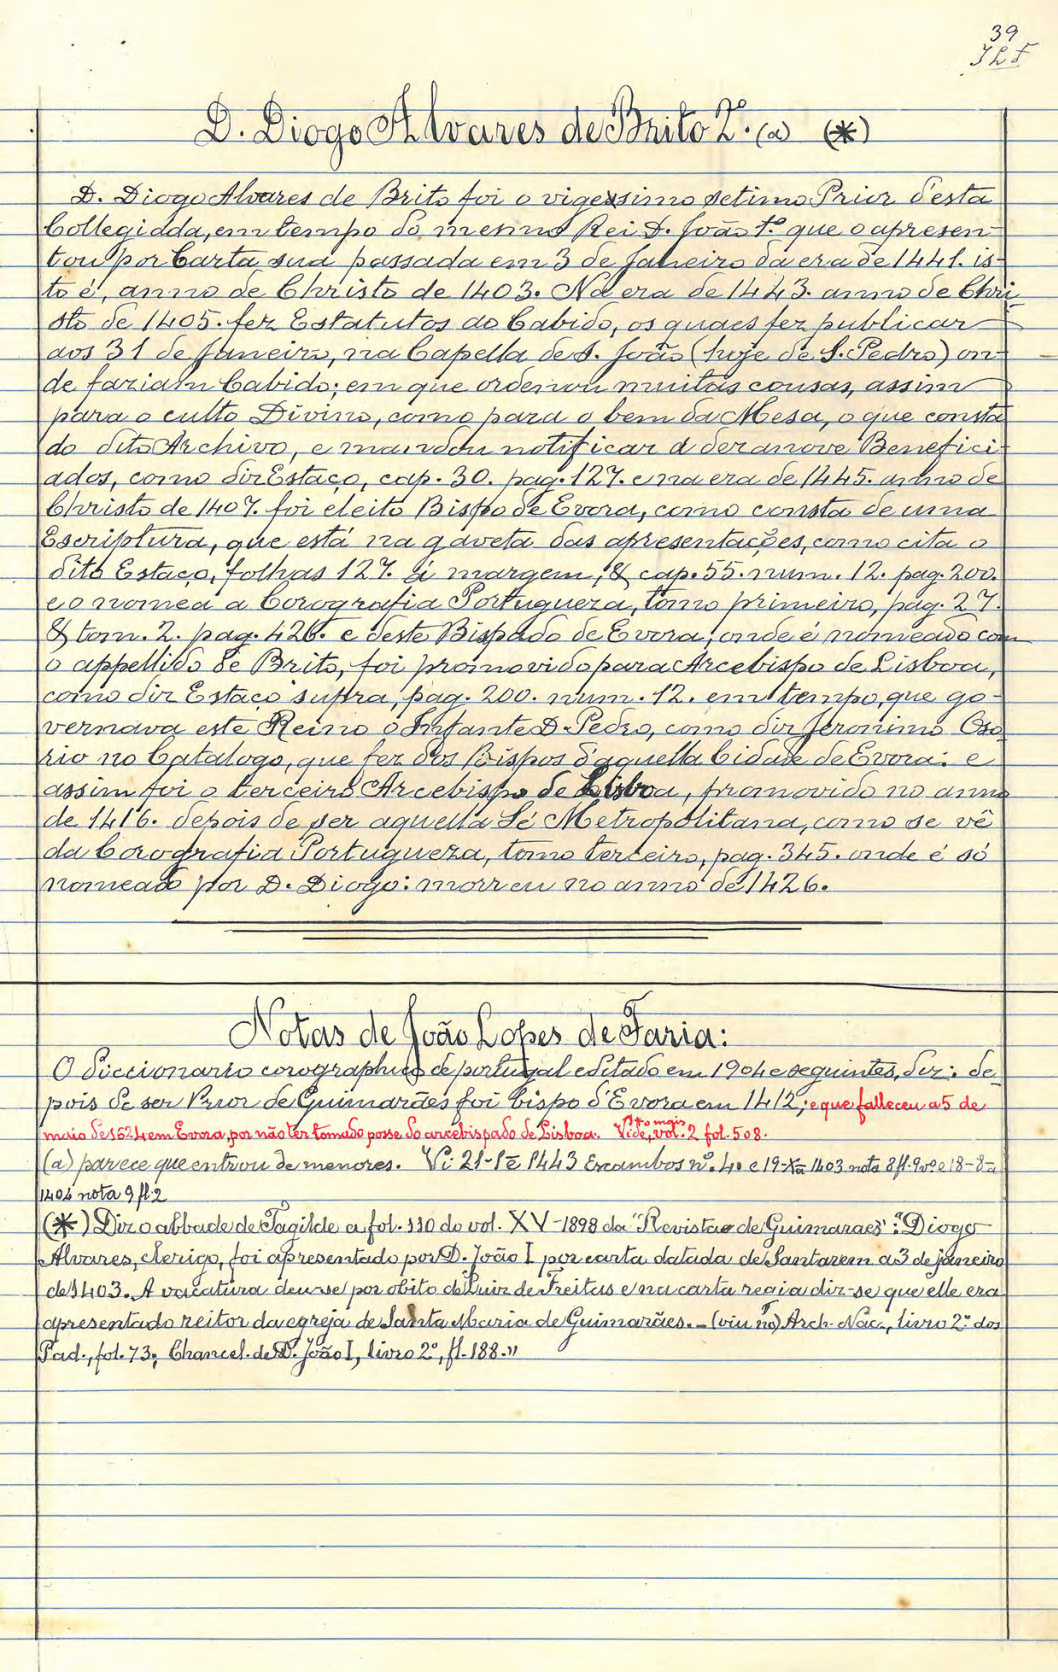 39
JLF
D. Diogo Alvares de Brito 2º. (a) (*)
D. Diogo Alvares de Brito foi o vigessimo setimo Prior d'esta
Collegidda, em tempo do mesmo Rei D. João 1º. que o apresen-
tou por Carta sua passada em 3 de Janeiro da era de 1441. is-
to é, anno de Christo de 1403. Na era de 1443. anno de Chri-
sto de 1405. fez Estatutos ao Cabido, os quaes fez publicar
aos 31 de Janeiro, na Capella de S. João (hoje de S. Pedro) on-
de faziam Cabido; em que ordenou muitas cousas, assim
para o culto Divino, como para o bem da Mesa, o que consta
do dito Archivo, e mandou notificar a dezanove Benefici-
ados, como diz Estaço, cap. 30. pag. 127. e na era de 1445. anno de
Christo de 1407. foi eleito Bispo de Evora, como consta de uma
Escriptura, que está na gaveta das apresentações, como cita o
dito Estaço, folhas 127. á margem, & cap. 55. num. 12. pag. 200.
e o nomea a Corografia Portugueza, tomo primeiro, pag. 27.
& tom. 2. pag. 426. e deste Bispado de Evora, onde é nomeado com
o appellido de Brito, foi promovido para Arcebispo de Lisboa,
como diz Estaço supra, pag. 200. num. 12. em tempo, que go-
vernava este Reino o Infante D. Pedro, como diz Jeronimo Oso-
rio no Catalogo, que fez dos Bispos d'aquella Cidade de Evora: e
assim foi o terceiro Arcebispo de Lisboa, promovido no anno
de 1416. depois de ser aquella Sé Metropolitana, como se vê
da Corografia Portugueza, tomo terceiro, pag. 345. onde é só
nomeado por D. Diogo: morreu no anno de 1426.
Notas de João Lopes de Faria:
O Diccionario corographico de portugal editado em 1904 e seguintes, diz: de-
pois de ser Prior de Guimarães foi bispo d'Evora em 1412; e que falleceu a 5 de
maio de 1524 em Evora, por não ter tomado posse do arcebispado de Lisboa. Vide, mais vol. 2 fol. 508.
(a) parece que entrou de menores. Vi 21-1º 1443 Escambos nº. 40 e 19-Xª 1403 nota 8 fl. 9vº e 18-8-
1404 nota 9 fl. 2
(*) Diz o abbade de Tagilde a fol. 110 do vol. XV-1898 da "Revista de Guimaraes": "Diogo
Alvares, clerigo, foi apresentado por D. João I por carta datada de Santarem a 3 de janeiro
de 1403. A vacatura deu-se por obito de Luiz de Freitas e na carta regia diz-se que elle era
apresentado reitor da egreja de Santa Maria de Guimarães. - (viu no) Arch. Nac., livro 2º dos
Pad., fol. 73; Chancel. de D. João I, livro 2º, fl. 188."